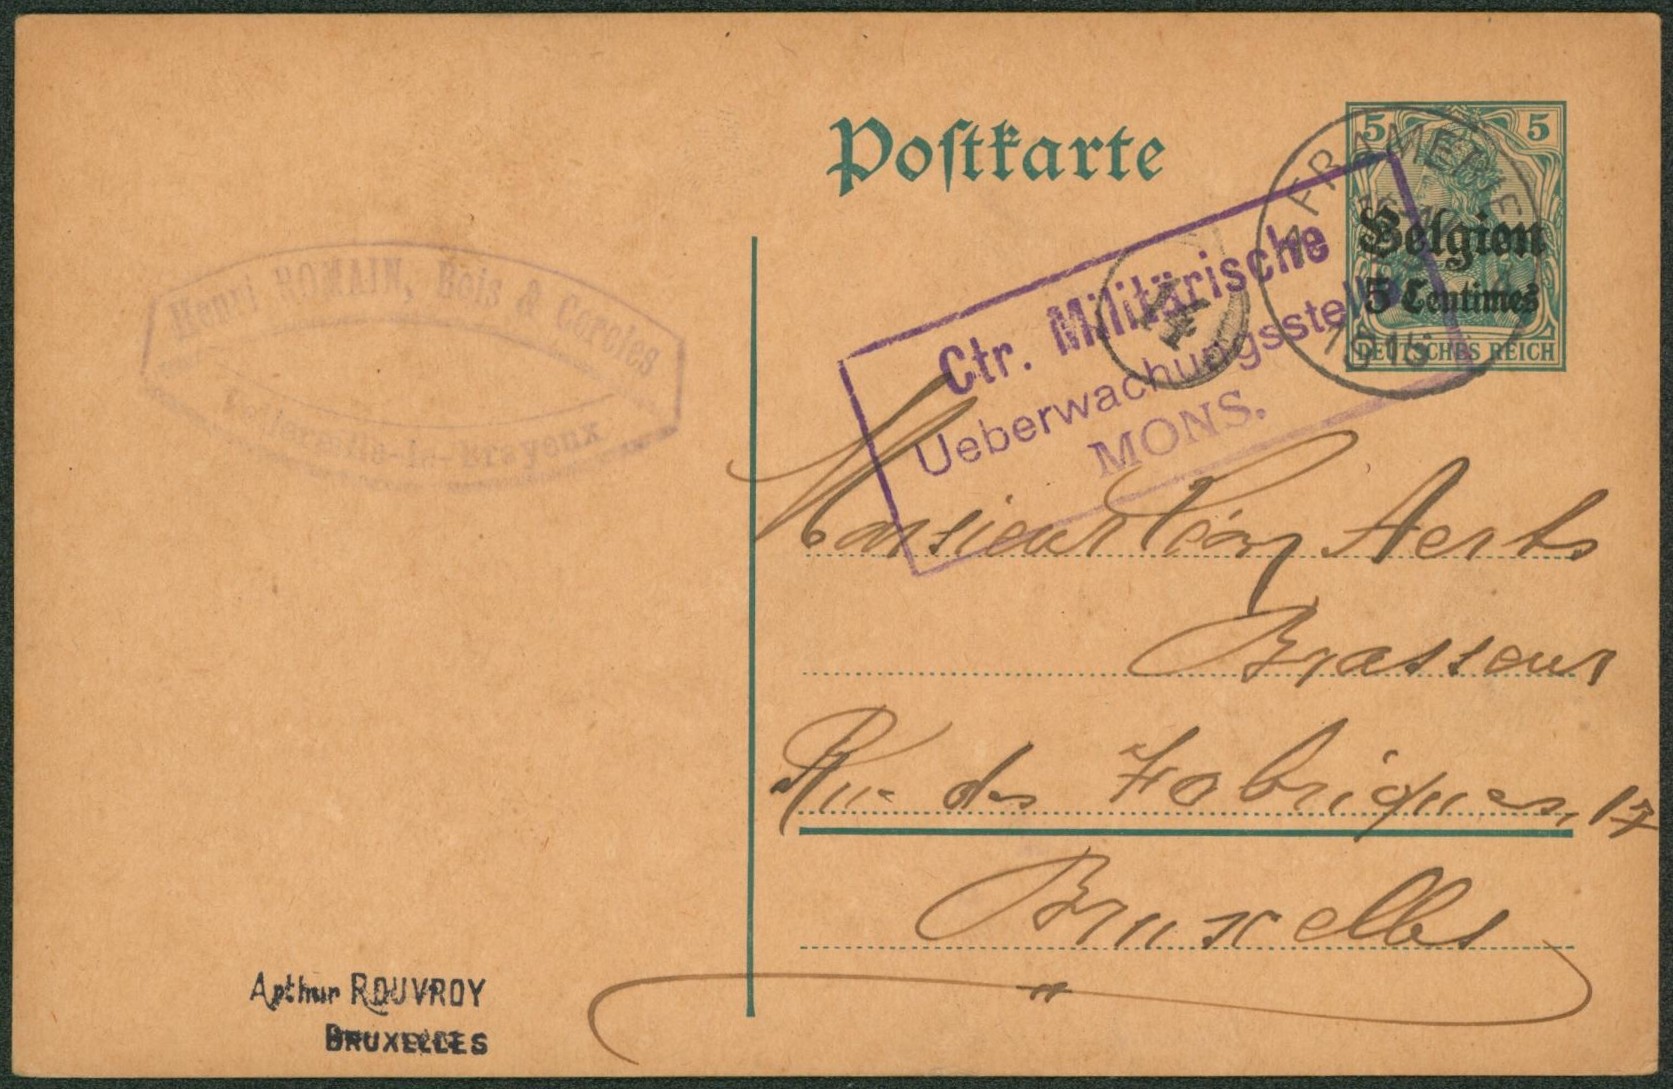 Postkarte
5 5
Belgien
5 Centimes
DEUTSCHES REICH
FRAMERIES
1915
Ctr. Militärische
Ueberwachungsstelle
MONS.
Henri ROMAIN, Bois & Cercles
Monsieur Léon Aerts
Brasseur
Rue des Fabriques, 17
Bruxelles
Arthur ROUVROY
BRUXELLES